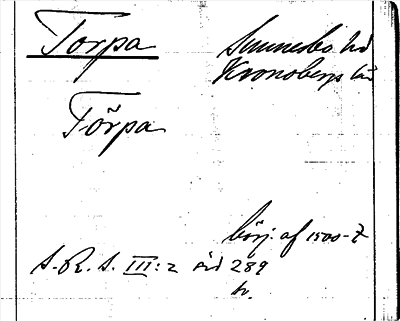 Torpa Sunnerbo hd
Kronobergs län
Törpa
börj. af 1500-t
S.R.S. III:2 sid 289